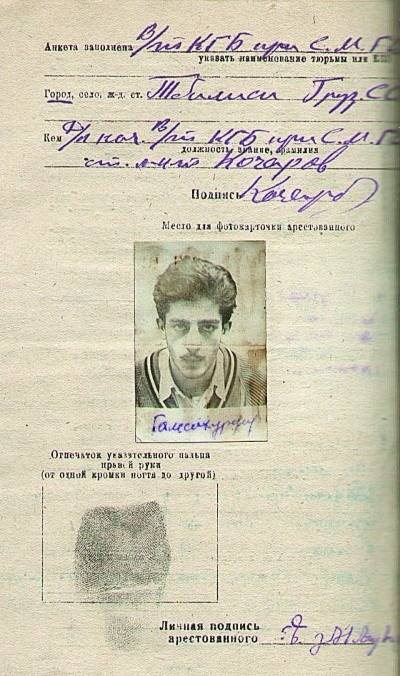 Анкета заполнена В/т КГБ при С.М. Г
указать наименование тюрьмы или К
Город, село, ж-д. ст. Тбилиси Груз. СС
Кем нач. В/т КГБ при С.М. Г
должность, звание, фамилия
ст. л-нт Кочаров
Подпись
Место для фотокарточки арестованного
Гамсахурдиа
Отпечаток указательного пальца
правой руки
(от одной кромки ногтя до другой)
Личная подпись
арестованного